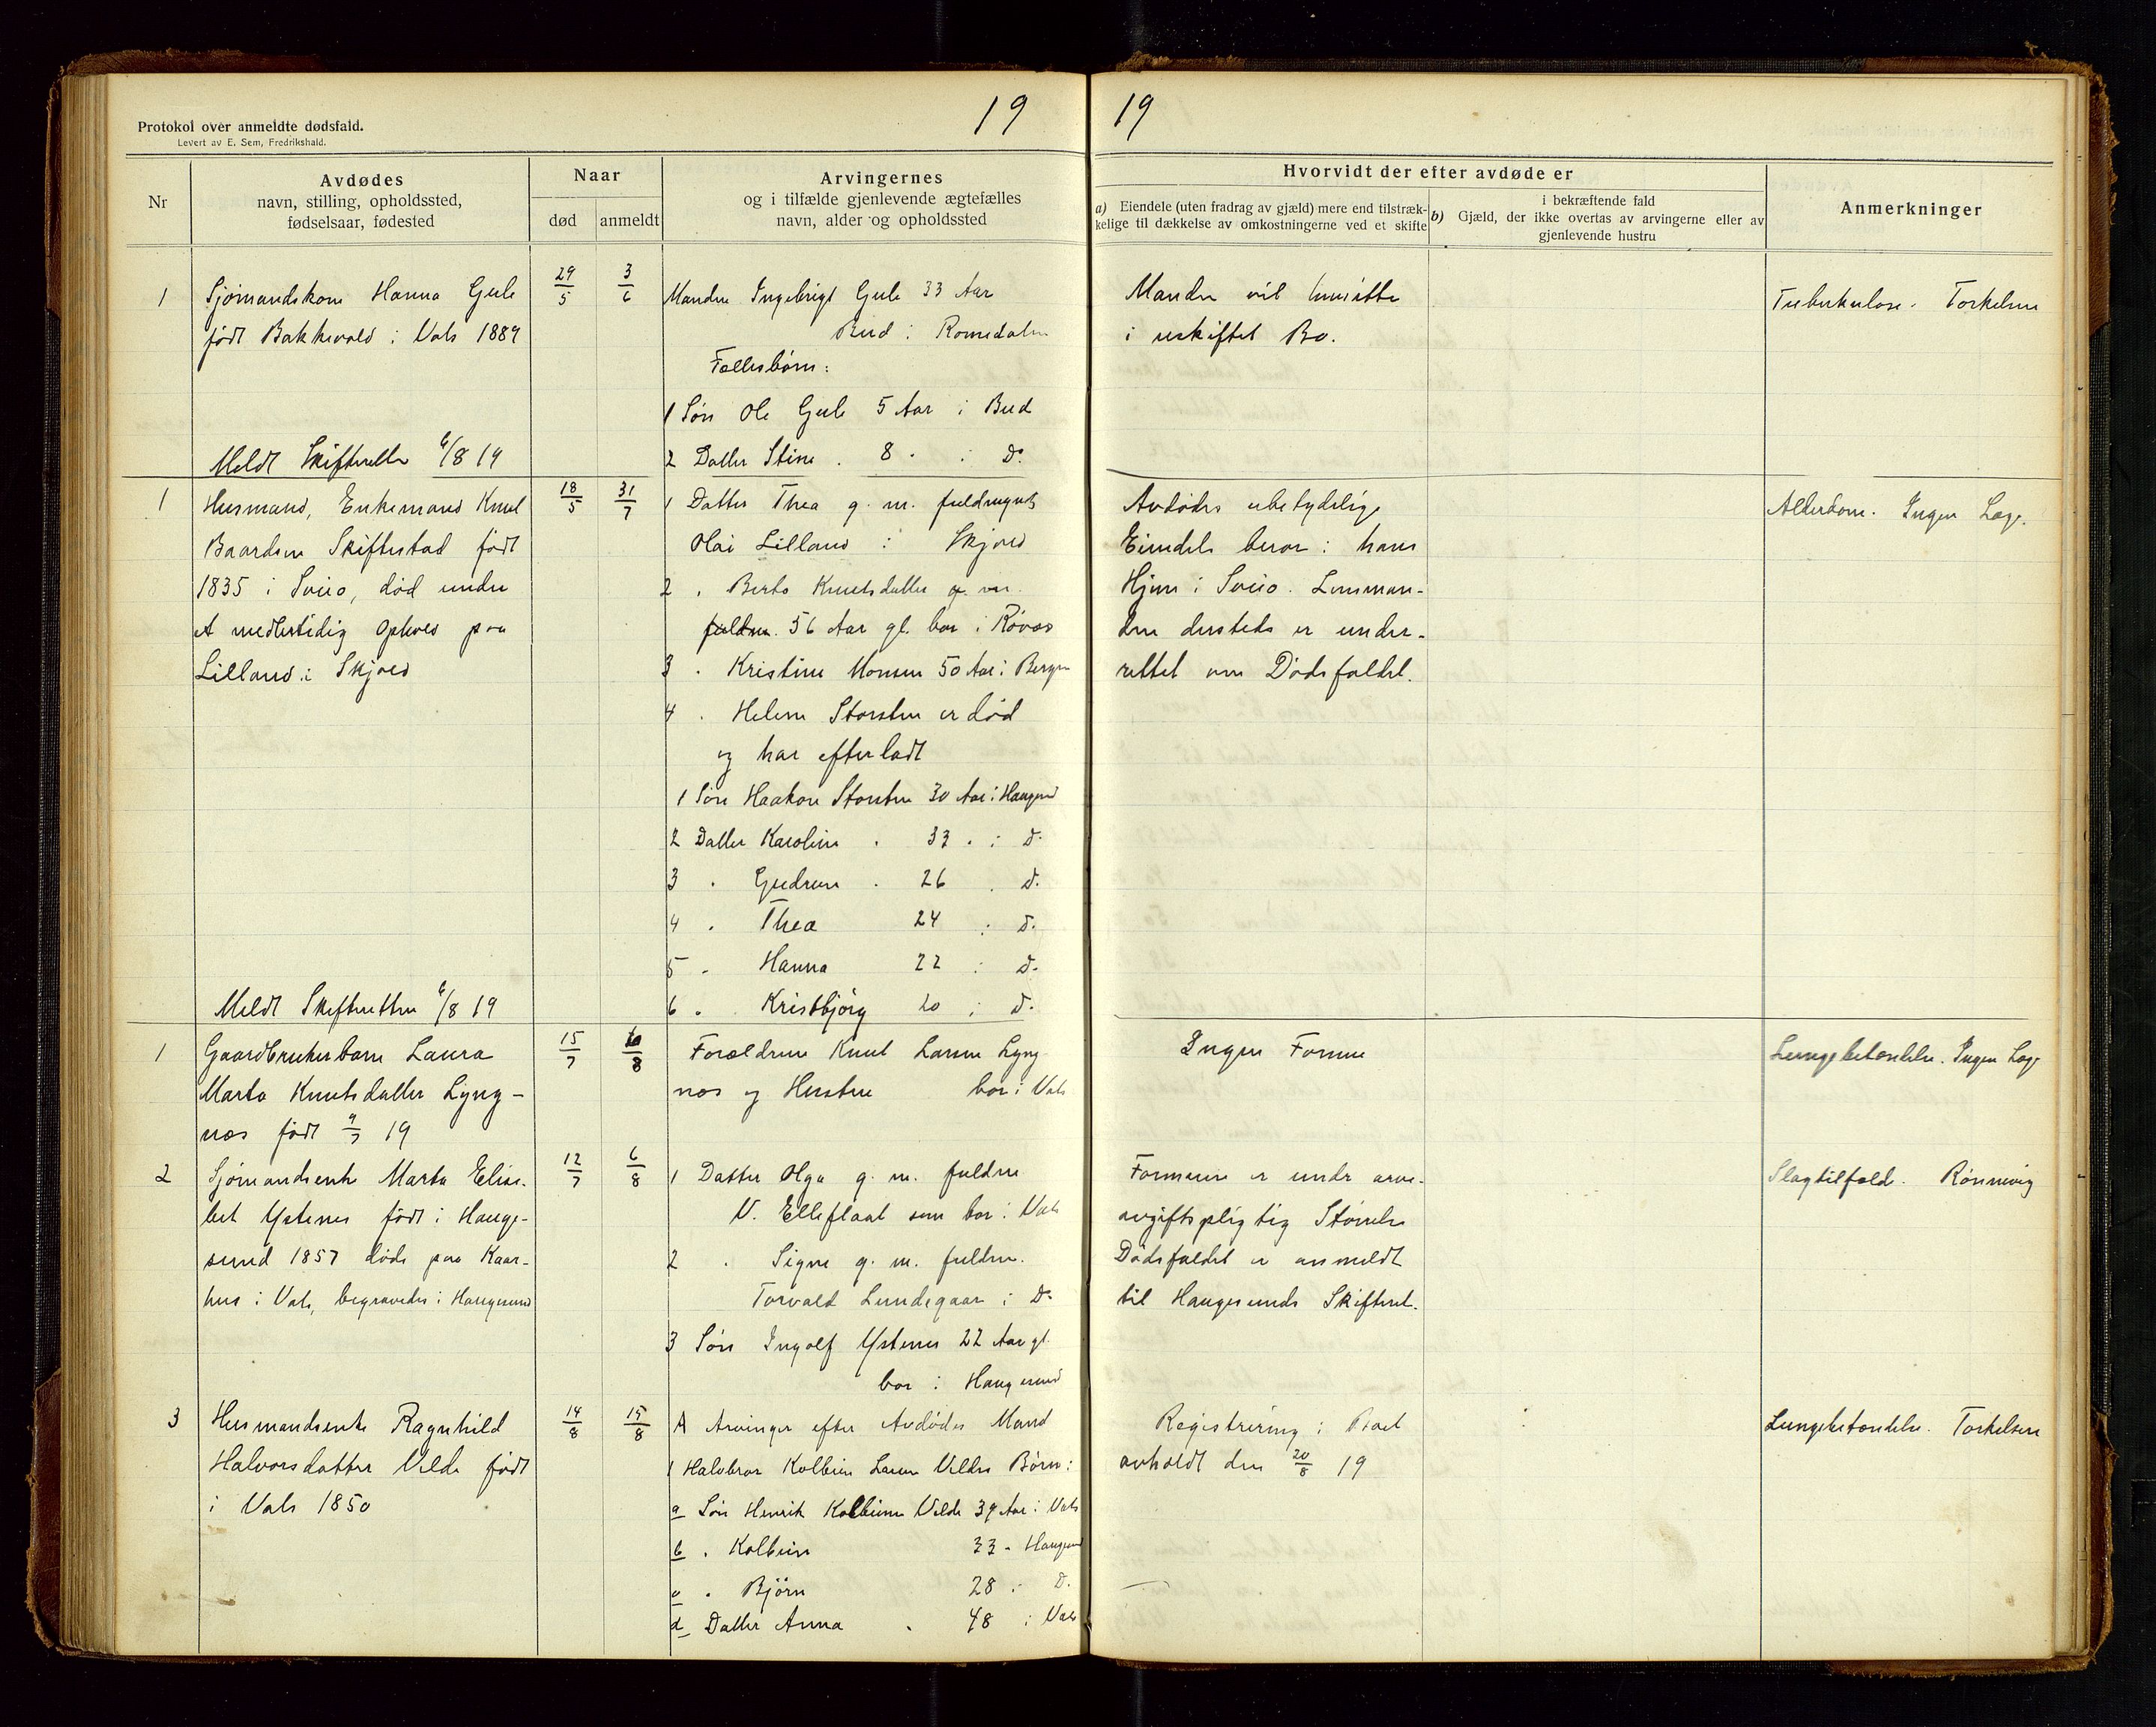 19
19
Protokol over anmeldte dødsfald.
Levert av E. Sem, Fredrikshald.
Nr
Avdødes
navn, stilling, opholdssted,
fødselsaar, fødested
Naar
død
anmeldt
Arvingernes
og i tilfælde gjenlevende ægtefælles
navn, alder og opholdssted
Hvorvidt der efter avdøde er
a) Eiendele (uten fradrag av gjæld) mere end tilstræk-
kelige til dækkelse av omkostningerne ved et skifte
i bekræftende fald
b) Gjæld, der ikke overtas av arvingerne eller av
gjenlevende hustru
Anmerkninger
1
Sjømandskone Hanna Gule
født Bakkevold i Vats 1889
29/5
3/6
Manden Ingebrigt Gule 33 Aar
Bud i Romsdalen
Fællesbørn:
1 Søn Ole Gule 5 Aar i Bud
2 Datter Stine . 8 . i Do
Manden vil hensitte
i uskiftet Bo.
Tuberkulose. Torkelsen
Meldt Skifteretten 6/8 19
1
Husmand, Enkemand Knut
Baardsen Skiftestad født
1835 i Sveio, død under
et midlertidig Ophold paa
Lilland i Skjold
18/5
31/7
1 Datter Thea g. m. fuldmyndig
Olai Lilland i Skjold
2 . Berta Knutsdatter g. m.
fuldm. 56 Aar gl. bor i Røvær
3 . Kristine Monsen 50 Aar i Bergen
4 . Helene Storsten er død
og har efterladt
1 Søn Haakon Storsten 30 Aar i Haugesund
2 Datter Karoline . 33 . i D.
3 . Gudrun . 26 . D.
4 . Thea 24 i D.
5 . Hanna 22 i D.
6 . Kristbjørg 20 i D.
Avdødes ubetydelige
Eiendele beror i hans
Hjem i Sveio. Lensman-
den dersteds er under-
rettet om Dødsfaldet.
Alderdom. Ingen Læge.
Meldt Skifteretten 6/8 19
1
Gaardbrukerbarn Laura
Marta Knutsdatter Lyng-
næs født 9/7 19
15/7
6/8
Forældrene Knut Larsen Lyng
næs og Hustru bor i Vats
Ingen Formue
Lungebetændelse. Ingen Læge
2
Sjømandsenke Marta Elisa-
bet Ystenes født i Hauge-
sund 1857 døde paa Kaar-
hus i Vats, begravedes i Haugesund
12/7
6/8
1 Datter Olga g. m. fuldm
V. Elleflaat som bor i Vats
2 . Signe g. m. fuldm.
Torvald Lundegaar i Do
3 Søn Ingolf Ystenes 22 Aar gl.
bor i Haugesund
Formuen er under arve-
avgiftspligtig Størrelse
Dødsfaldet er anmeldt
til Haugesunds Skifteret.
Slagtilfælde. Rønnevig
3
Husmandsenke Ragnhild
Halvorsdatter Velde født
i Vats 1850
14/8
15/8
A Arvinger efter Avdødes Mand
1 Halvbror Kolbein Larsen Veldes Børn:
a Søn Henrik Kolbeinsen Velde 39 Aar i Vats
b . Kolbein 33 . Haugesund
c . Bjørn 28 . D.
d Datter Anna . 48 i Vats
Registrering i Boet
avholdt den 20/8 19
Lungebetændelse. Torkelsen